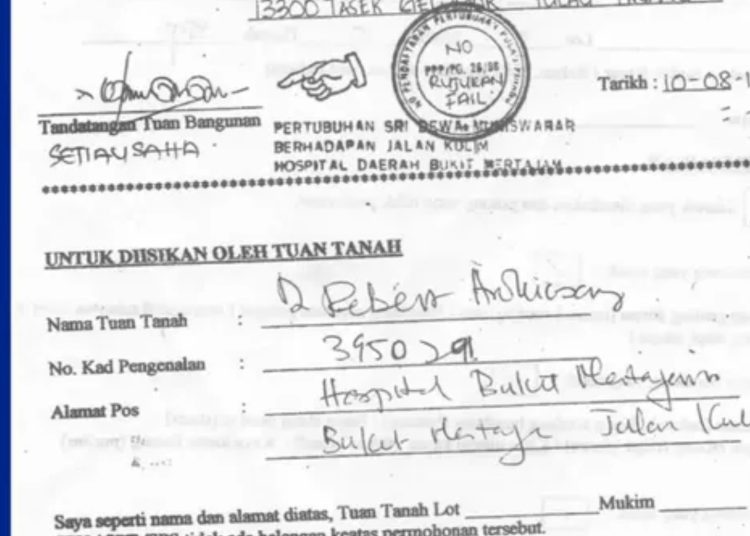 13300 TASEK GELUGOR PULAU PINANG
NO PENDAFTARAN PERTUBUHAN PULAU PINANG
NO
PPP/PG. 28/86
RUJUKAN
FAIL
Tarikh : 10-08-1
Tandatangan Tuan Bangunan
SETIAUSAHA
PERTUBUHAN SRI DEWA MUNISWARAR
BERHADAPAN JALAN KULIM
HOSPITAL DAERAH BUKIT MERTAJAM
UNTUK DIISIKAN OLEH TUAN TANAH
Nama Tuan Tanah :
No. Kad Pengenalan : 3950291
Alamat Pos : Hospital Bukit Mertajam
Bukit Mertajam Jalan Kul
Saya seperti nama dan alamat diatas, Tuan Tanah Lot Mukim
tidak ada halangan keatas permohonan tersebut.